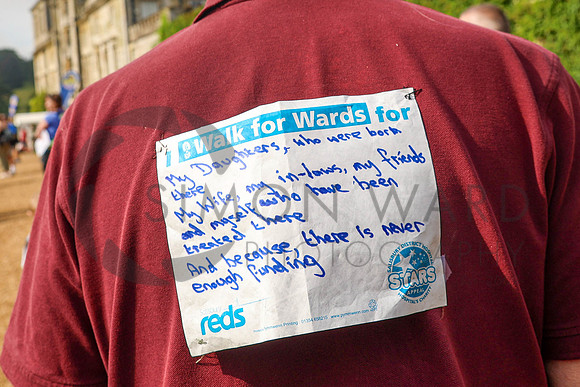 I Walk for Wards for
My Daughters, who were born
there
My wife, my in-laws, my friends
and myself who have been
treated there
And because, there is never
enough funding
SIMON WARD
PHOTO
SALISBURY DISTRICT HOSPITAL
STARS
APPEAL
reds